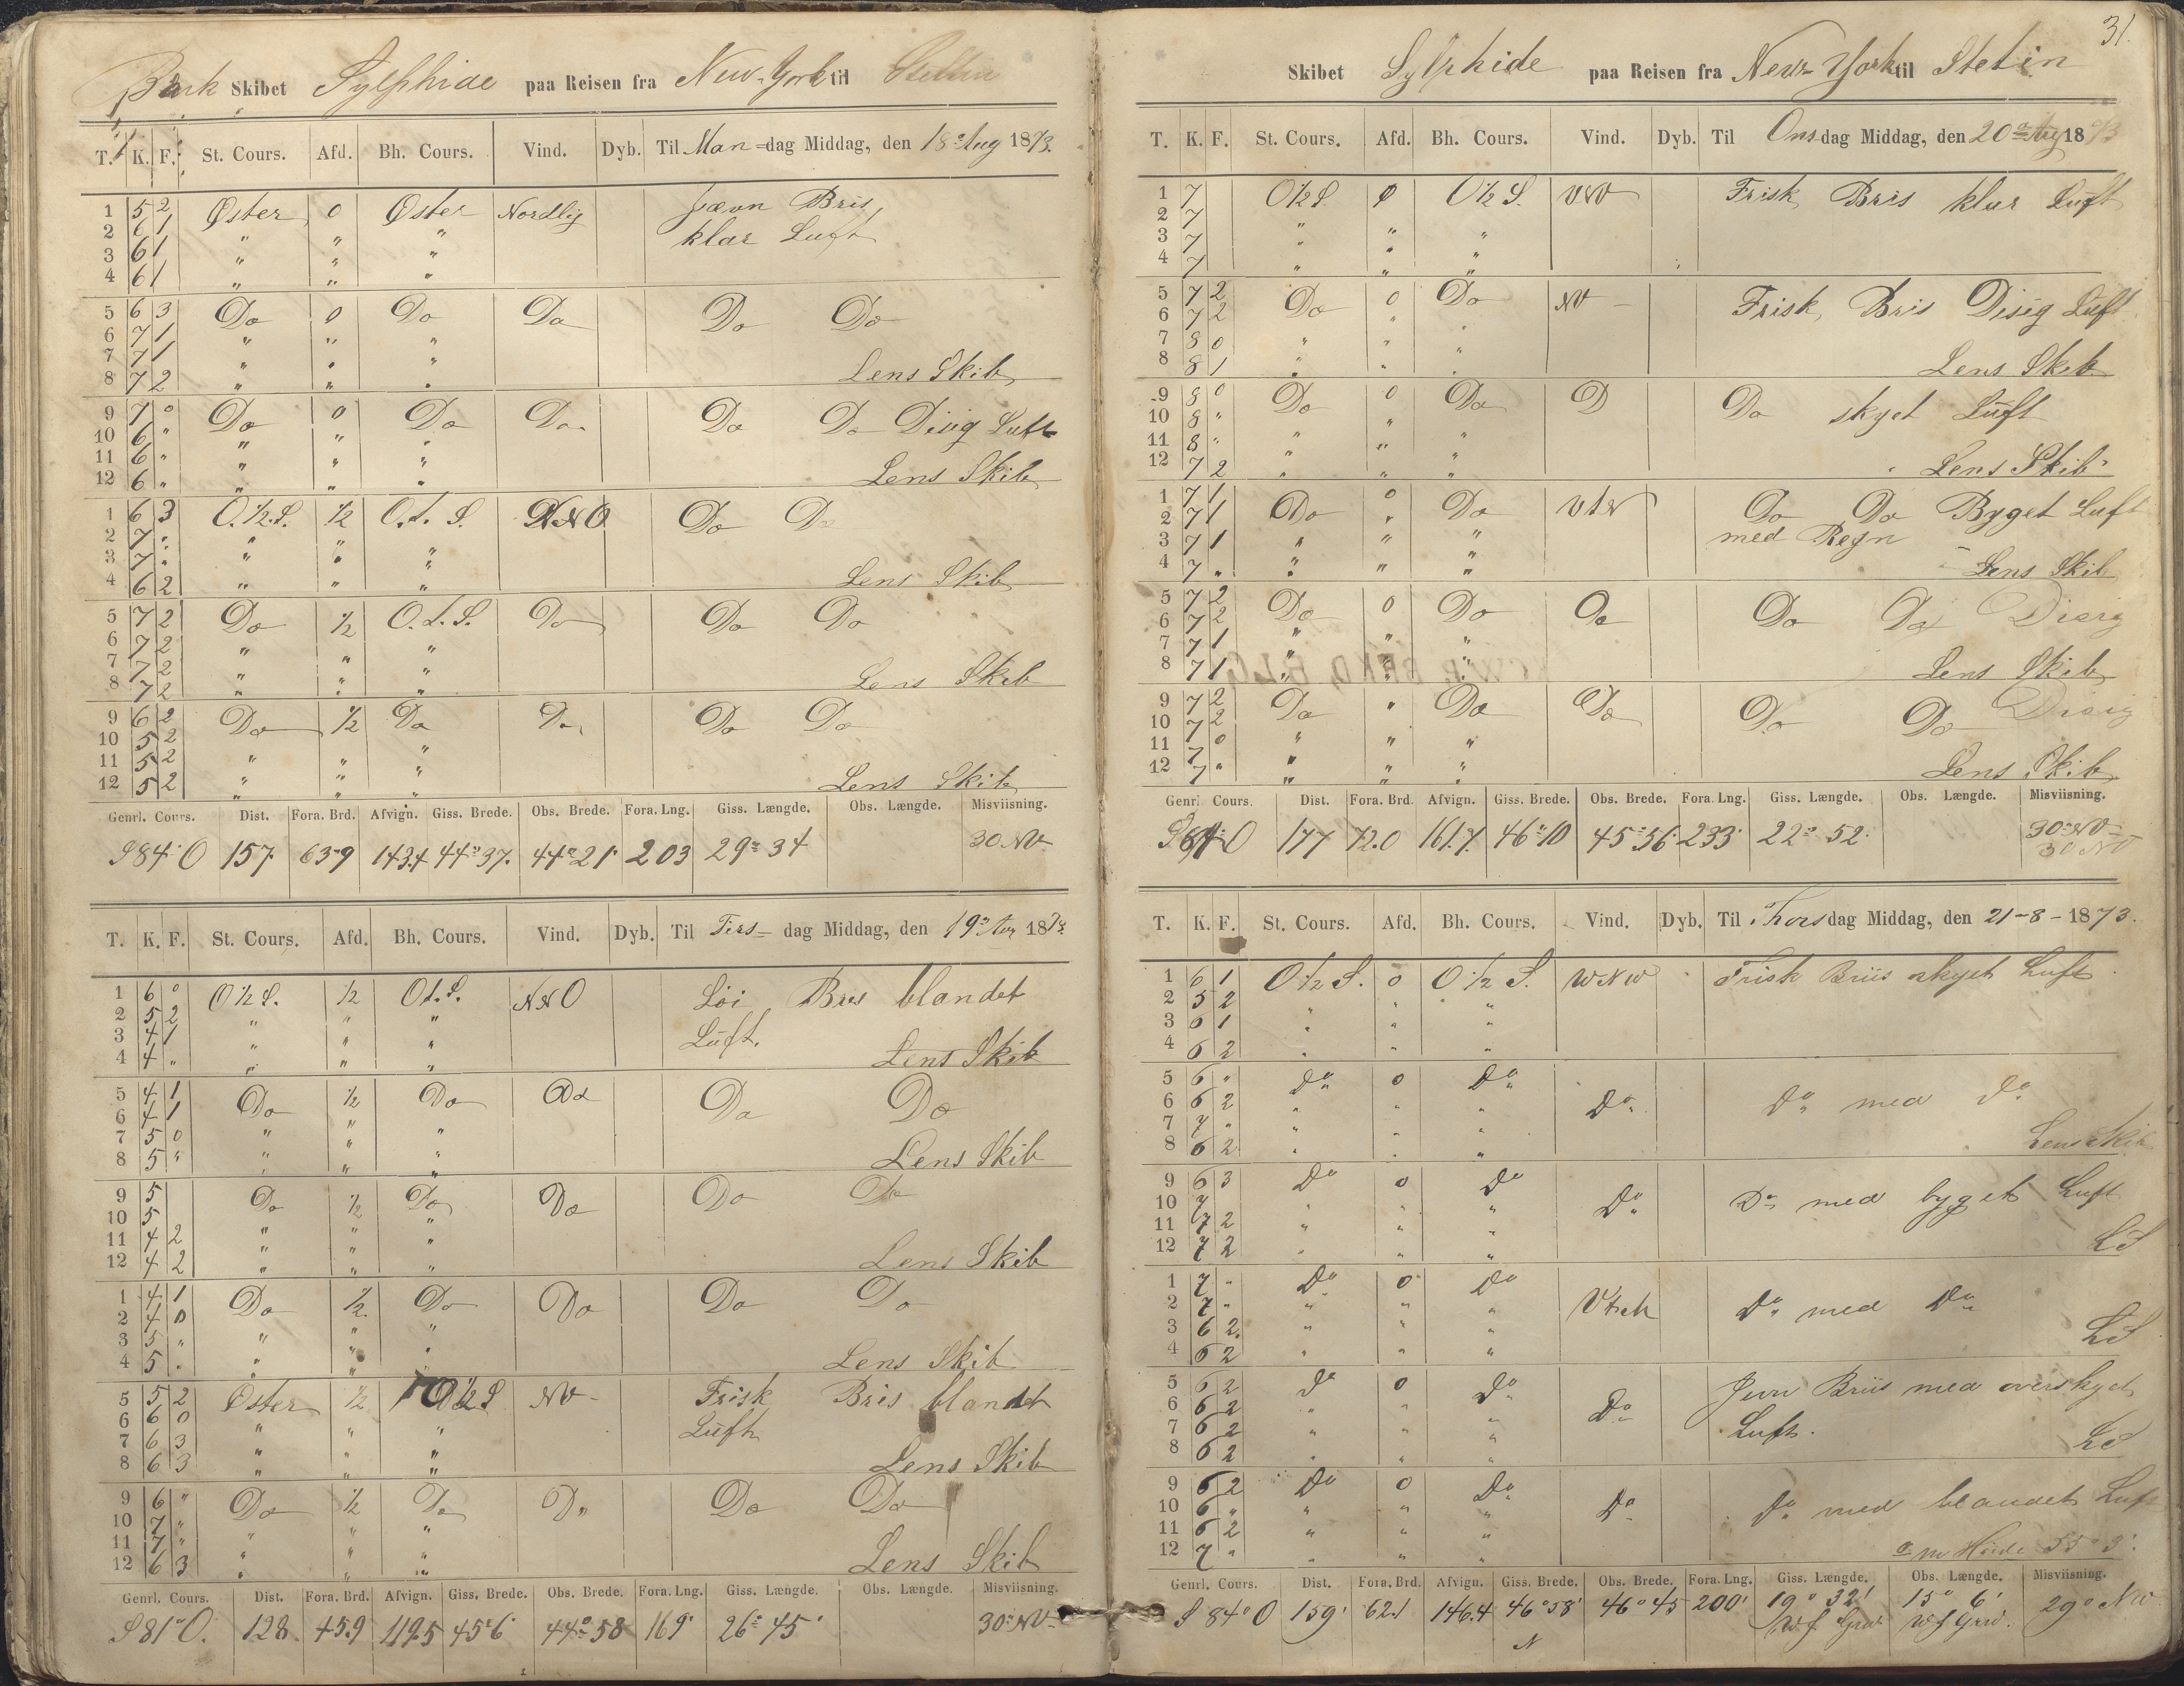 Bark Skibet Sylphide paa Reisen fra New-York til Stettin
T. K. F. St. Cours. Afd. Bh. Cours. Vind. Dyb. Til Man-dag Middag, den 18de Aug 1873.
1 5 2 Øster 0 Øster Nordlig Jævn Bris
2 6 1 " " " klar Luft
3 6 1 " " "
4 6 1 " " "
5 6 3 Do 0 Do Do Do Do
6 7 1 " " "
7 7 1 " " "
8 7 2 " " " Lens Skib
9 7 0 Do 0 Do Do Do Do Disig Luft
10 6 " " " "
11 6 " " " "
12 6 " " " " Lens Skib
1 6 3 O.½.S. ½ O.t.S. NNO Do Do
2 7 " " " "
3 7 " " " "
4 6 2 " " " Lens Skib
5 7 2 Do ½ O.t.S. Do Do Do
6 7 2 " " "
7 7 2 " " "
8 7 2 " " " Lens Skib
9 6 2 Do ½ Do Do Do Do
10 5 2 "
11 5 2 " " "
12 5 2 " " " Lens Skib
Genrl. Cours. Dist. Fora. Brd. Afvign. Giss. Brede. Obs. Brede. Fora. Lng. Giss. Længde. Obs. Længde. Misviisning.
S84°O 157 63.9 143.4 44°37. 44°21' 203 29° 34 30 NV
T. K. F. St. Cours. Afd. Bh. Cours. Vind. Dyb. Til Tirs- dag Middag, den 19de Aug 1873
1 6 0 O½S. ½ Ot.S. NNO Löi Bris blandet
2 5 2 " " " Luft.
3 4 1 " " "
4 4 " " " " Lens Skib
5 4 1 Do ½ Do Do Do Do
6 4 1 "
7 5 0 " " "
8 5 " " " " Lens Skib
9 5 Do ½ Do Do Do Do
10 5 " " "
11 4 2 " " "
12 4 2 " " " Lens Skib
1 4 1 Do ½ Do Do Do Do
2 4 0 "
3 5 " " " "
4 5 " " " " Lens Skib
5 5 2 Öster ½ O½S NV- Frisk Bris blandt
6 6 0 " " " Luft
7 6 3 " " "
8 6 3 " " " Lens Skib
9 6 " Do ½ Do Do Do Do
10 7 " " " "
11 7 " " " "
12 6 3 " " " Lens Skib
Genrl. Cours. Dist. Fora. Brd. Afvign. Giss. Brede. Obs. Brede. Fora. Lng. Giss. Længde. Obs. Længde. Misviisning.
S81°O. 128 45.9 119.5 45°6' 44°58 169' 26° 45' 30°NV-
31.
Skibet Sylphide paa Reisen fra New-York til Stetin
T. K. F. St. Cours. Afd. Bh. Cours. Vind. Dyb. Til Ons-dag Middag, den 20de Aug 1873
1 7 O½S. 0 O½S. VNV Frisk Bris klar Luft
2 7 " " "
3 7 " " "
4 7 " " "
5 7 2 Do 0 Do NV- Frisk Bris Disig Luft
6 7 2 " "
7 8 0 " " "
8 8 1 " " " Lens Skib
9 8 0 Do 0 Do D Do skyet Luft
10 8 " "
11 8 " " " "
12 7 2 " " " Lens Skib
1 7 1 Do 0 Do VtN Do Do Byget Luft
2 7 1 " med Regn
3 7 1 " " "
4 7 " " " " Lens Skib
5 7 2 Do 0 Do Do Do Do Disig
6 7 2
7 7 1 " " "
8 7 1 " " " Lens Skib
9 7 2 Do " Do Do Do Do Disig
10 7 2
11 7 0 " " "
12 7 " " " " Lens Skib
Genrl Cours. Dist. Fora. Brd. Afvign. Giss. Brede. Obs. Brede. Fora. Lng. Giss. Længde. Obs. Længde. Misviisning.
O 177 72.0 161.7. 46°10 45°36' 233' 22° 52' 30°NV-
30 NV
T. K. F. St. Cours. Afd. Bh. Cours. Vind. Dyb. Til Thorsdag Middag, den 21-8-1873.
1 6 1 O½S. 0 O½S. WNW Frisk Briis skyet Luft
2 5 2 " " "
3 6 1 " "
4 6 2 " " "
5 6 " Do 0 Do
6 6 2 " " " Do Do med Do
7 7 " " " "
8 6 2 " " " Lens Skib
9 6 3 Do 0 Do Do med byget Luft
10 7 " " " Do
11 7 2 " " "
12 7 2 " " " LS
1 7 " Do 0 Do
2 7 " " " " Do med Do
3 6 2 " " "
4 6 2 " " " LS
5 6 2 Do 0 Do Jevn Briis med overskyet
6 6 2 " " " Do
7 6 2 " " " Luft.
8 6 2 " " " LS
9 6 2 Do 0 Do
10 6 " " " " Do Do med blandet Luft
11 6 2 " " "
12 7 " " " "
Genrl. Cours. Dist. Fora. Brd. Afvign. Giss. Brede. Obs. Brede. Fora. Lng. Giss. Længde. Obs. Længde. Misviisning.
S 84°O 159' 62.1 146.4 46°58' 46°45 200' 19° 32' 15° 6' 29° NW
N W f Grw. W f Grw.